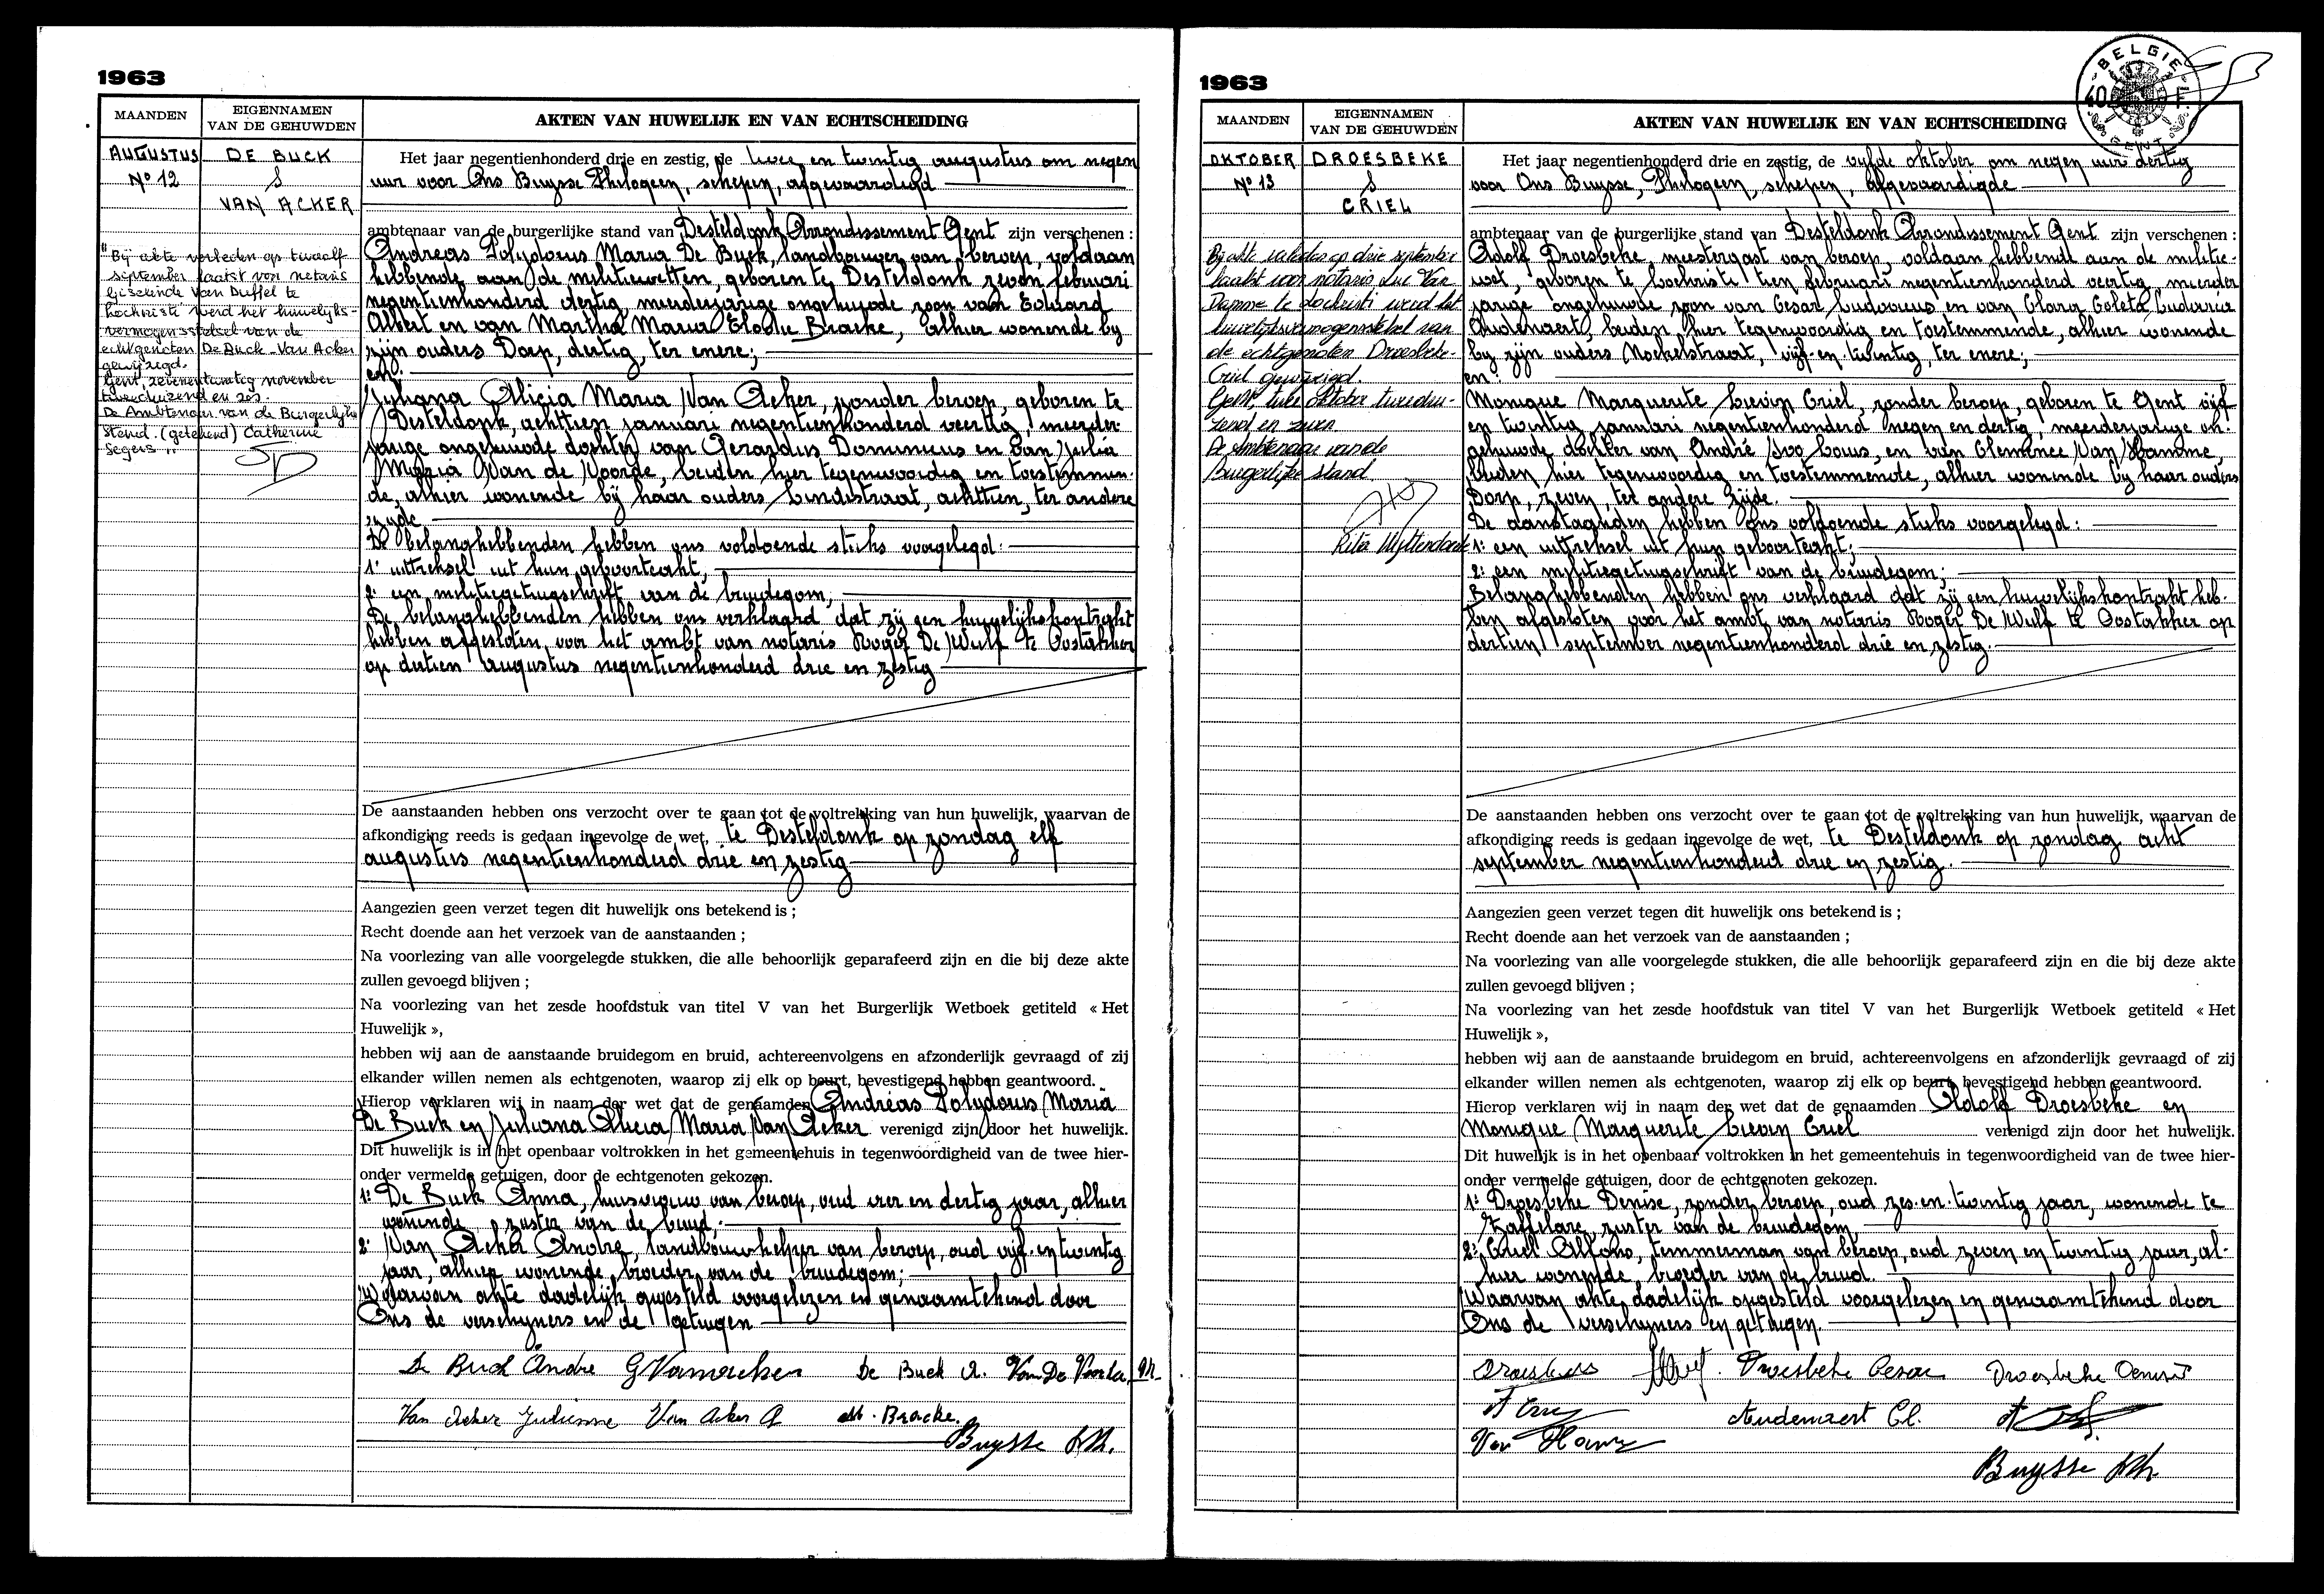 1963
MAANDEN
EIGENNAMEN
VAN DE GEHUWDEN
AKTEN VAN HUWELIJK EN VAN ECHTSCHEIDING
AUGUSTUS
Nº 12
DE BUCK
&
VAN ACKER
"Bij akte verleden op twaalf
september laatst voor notaris
Giselinde Van Duffel te
Lochristi werd het huwelijks-
vermogensstelsel van de
echtgenoten De Buck - Van Acker
gewijzigd.
Gent, zevenentwintig november
tweeduizend en zes.
De Ambtenaar van de Burgerlijke
Stand. (getekend) Catherine
Segers".
Het jaar negentienhonderd drie en zestig, de twee en twintig augustus om negen
uur voor Ons Buysse Philogeen, schepen, afgevaardigd
ambtenaar van de burgerlijke stand van Desteldonk Arrondissement Gent zijn verschenen :
Andreas Polydorus Maria De Buck, landbouwer van beroep, voldaan
hebbende aan de militiewetten, geboren te Desteldonk zeven februari
negentienhonderd dertig, meerderjarige ongehuwde zoon van Eduard
Albert en van Martha Maria Elodie Bracke, alhier wonende by
zijn ouders Dorp, dertig, ter enere;
en:
Juliana Alicia Maria Van Acker, zonder beroep, geboren te
Desteldonk, achttien januari negentienhonderd veertig, meerder-
jarige ongehuwde dochter van Gerardus Dominicus en van Julia
Maria Van de Voorde, beiden hier tegenwoordig en toestemmen-
de, alhier wonende bij haar ouders Lindestraat, achttien, ter andere
zijde.
De belanghebbenden hebben ons voldoende stuks voorgelegd:
1: uittreksel uit hun geboorteakt,
2: een militiegetuigschrift van de bruidegom;
De belanghebbenden hebben ons verklaard dat zij een huwelijkskontrakt
hebben afgesloten voor het ambt van notaris Roger De Wulf te Oostakker
op dertien augustus negentienhonderd drie en zestig
De aanstaanden hebben ons verzocht over te gaan tot de voltrekking van hun huwelijk, waarvan de
afkondiging reeds is gedaan ingevolge de wet, te Desteldonk op zondag elf
augustus negentienhonderd drie en zestig
Aangezien geen verzet tegen dit huwelijk ons betekend is ;
Recht doende aan het verzoek van de aanstaanden ;
Na voorlezing van alle voorgelegde stukken, die alle behoorlijk geparafeerd zijn en die bij deze akte
zullen gevoegd blijven ;
Na voorlezing van het zesde hoofdstuk van titel V van het Burgerlijk Wetboek getiteld « Het
Huwelijk »,
hebben wij aan de aanstaande bruidegom en bruid, achtereenvolgens en afzonderlijk gevraagd of zij
elkander willen nemen als echtgenoten, waarop zij elk op beurt, bevestigend hebben geantwoord.
Hierop verklaren wij in naam der wet dat de genaamden Andreas Polydorus Maria
De Buck en Juliana Alicia Maria Van Acker verenigd zijn door het huwelijk.
Dit huwelijk is in het openbaar voltrokken in het gemeentehuis in tegenwoordigheid van de twee hier-
onder vermelde getuigen, door de echtgenoten gekozen.
1: De Buck Anna, huisvrouw van beroep, oud vier en dertig jaar, alhier
wonende, zuster van de bruid;
2: Van Acker Andre, landbouwhelper van beroep, oud vijf en twintig
jaar, alhier wonende, broeder van de bruidegom;
Waarvan akte dadelijk opgesteld voorgelezen en genaamtekend door
Ons de verschijners en de getuigen
De Buck Andre G Vanacker De Buck A. Van De Voorde M.
Van Acker Julienne Van Acker A M. Bracke.
Buysse Ph.
1963
BELGIE
40 F.
GENT
MAANDEN
EIGENNAMEN
VAN DE GEHUWDEN
AKTEN VAN HUWELIJK EN VAN ECHTSCHEIDING
OKTOBER
Nº 13
DROESBEKE
&
CRIEL
Bij akte verleden op drie september
laatst voor notaris Luc Van
Damme te Lochristi werd het
huwelijksvermogensstelsel van
de echtgenoten Droesbeke-
Criel gewijzigd.
Gent, twee oktober tweedui-
zend en zeven
De Ambtenaar van de
Burgerlijke Stand
Rita Uyttendaele
Het jaar negentienhonderd drie en zestig, de vijfde oktober om negen uur dertig
voor Ons Buysse, Philogeen, schepen, afgevaardigde
ambtenaar van de burgerlijke stand van Desteldonk Arrondissement Gent zijn verschenen :
Adolf Droesbeke, meestergast van beroep, voldaan hebbende aan de militie-
wet, geboren te Lochristi tien februari negentienhonderd veertig, meerder
jarige ongehuwde zoon van Cesar Ludovicus en van Clara Coleta Ludovica
Audenaert, beiden hier tegenwoordig en toestemmende, alhier wonende
by zijn ouders Moekelstraat, vijf en twintig, ter enere;
en:
Monique Marguerite Lievin Criel, zonder beroep, geboren te Gent vijf
en twintig januari negentienhonderd negen en dertig, meerderjarige on-
gehuwde dochter van André Ivo Louis, en van Clemence Van Hamme,
beiden hier tegenwoordig en toestemmende, alhier wonende bij haar ouders
Dorp, zeven, ter andere zijde.
De aanstaanden hebben ons voldoende stuks voorgelegd:
1: een uittreksel uit hun geboorteakt;
2: een militiegetuigschrift van de bruidegom;
Belanghebbenden hebben ons verklaard dat zij een huwelijkskontrakt heb-
ben afgesloten voor het ambt van notaris Roger De Wulf te Oostakker op
dertien september negentienhonderd drie en zestig.
De aanstaanden hebben ons verzocht over te gaan tot de voltrekking van hun huwelijk, waarvan de
afkondiging reeds is gedaan ingevolge de wet, te Desteldonk op zondag acht
september negentienhonderd drie en zestig.
Aangezien geen verzet tegen dit huwelijk ons betekend is ;
Recht doende aan het verzoek van de aanstaanden ;
Na voorlezing van alle voorgelegde stukken, die alle behoorlijk geparafeerd zijn en die bij deze akte
zullen gevoegd blijven ;
Na voorlezing van het zesde hoofdstuk van titel V van het Burgerlijk Wetboek getiteld « Het
Huwelijk »,
hebben wij aan de aanstaande bruidegom en bruid, achtereenvolgens en afzonderlijk gevraagd of zij
elkander willen nemen als echtgenoten, waarop zij elk op beurt, bevestigend hebben geantwoord.
Hierop verklaren wij in naam der wet dat de genaamden Adolf Droesbeke en
Monique Marguerite Lievin Criel verenigd zijn door het huwelijk.
Dit huwelijk is in het openbaar voltrokken in het gemeentehuis in tegenwoordigheid van de twee hier-
onder vermelde getuigen, door de echtgenoten gekozen.
1: Droesbeke Denise, zonder beroep, oud zes en twintig jaar, wonende te
Zaffelare, zuster van de bruidegom
2: Criel Alfons, temmerman van beroep, oud zeven en twintig jaar, al-
hier wonende, broeder van de bruid.
Waarvan akte dadelijk opgesteld voorgelezen en genaamtekend door
Ons de verschijners en getuigen.
Droesbeke Droesbeke Cesar Droesbeke Denise
Audenaert Cl.
Van Hamme
Buysse Ph.